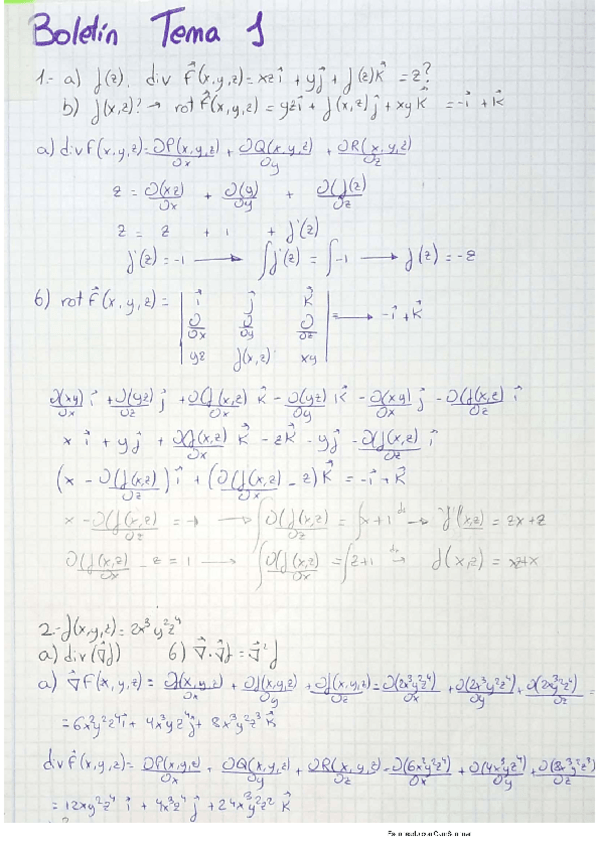 Boletín Tema 1
1.- a) f(z), div F⃗(x,y,z) = xz i⃗ + y j⃗ + f(z) k⃗ = z?
b) f(x,z)? → rot F⃗(x,y,z) = yz i⃗ + f(x,z) j⃗ + xy k⃗ = -i⃗ + k⃗
a) div F(x,y,z) = ∂P(x,y,z)/∂x + ∂Q(x,y,z)/∂y + ∂R(x,y,z)/∂z
z = ∂(xz)/∂x + ∂(y)/∂y + ∂f(z)/∂z
z = z + 1 + f'(z)
f'(z) = -1 → ∫f'(z) = ∫-1 → f(z) = -z
b) rot F⃗(x,y,z) = | i⃗ j⃗ k⃗ | = → -i⃗ + k⃗
∂/∂x ∂/∂y ∂/∂z
yz f(x,z) xy
∂(xy)/∂x i⃗ + ∂(yz)/∂z j⃗ + ∂f(x,z)/∂x k⃗ - ∂(yz)/∂y k⃗ - ∂(xy)/∂x j⃗ - ∂f(x,z)/∂z i⃗
x i⃗ + y j⃗ + ∂f(x,z)/∂x k⃗ - z k⃗ - y j⃗ - ∂f(x,z)/∂z i⃗
(x - ∂(f(x,z)/∂z) i⃗ + (∂(f(x,z)/∂x - z) k⃗ = -i⃗ + k⃗
x - ∂(f(x,z)/∂z = -1 → ∫∂(f(x,z)/∂z = ∫x+1 dz → f(x,z) = zx+z
∂(f(x,z)/∂x - z = 1 → ∫∂(f(x,z)/∂x = ∫z+1 dx → f(x,z) = xz+x
2.- f(x,y,z) = 2x³y²z⁴
a) div(∇⃗f) b) ∇⃗·∇⃗f = ∇⃗²f
a) ∇⃗F(x,y,z) = ∂f(x,y,z)/∂x + ∂f(x,y,z)/∂y + ∂f(x,y,z)/∂z = ∂(2x³y²z⁴)/∂x + ∂(2x³y²z⁴)/∂y + ∂(2x³y²z⁴)/∂z =
= 6x²y²z⁴ i⃗ + 4x³yz⁴ j⃗ + 8x³y²z³ k⃗
div F⃗(x,y,z) = ∂P(x,y,z)/∂x + ∂Q(x,y,z)/∂y + ∂R(x,y,z)/∂z = ∂(6x²y²z⁴)/∂x + ∂(4x³yz⁴)/∂y + ∂(8x³y²z³)/∂z
= 12xy²z⁴ i⃗ + 4x³z⁴ j⃗ + 24x³y²z² k⃗